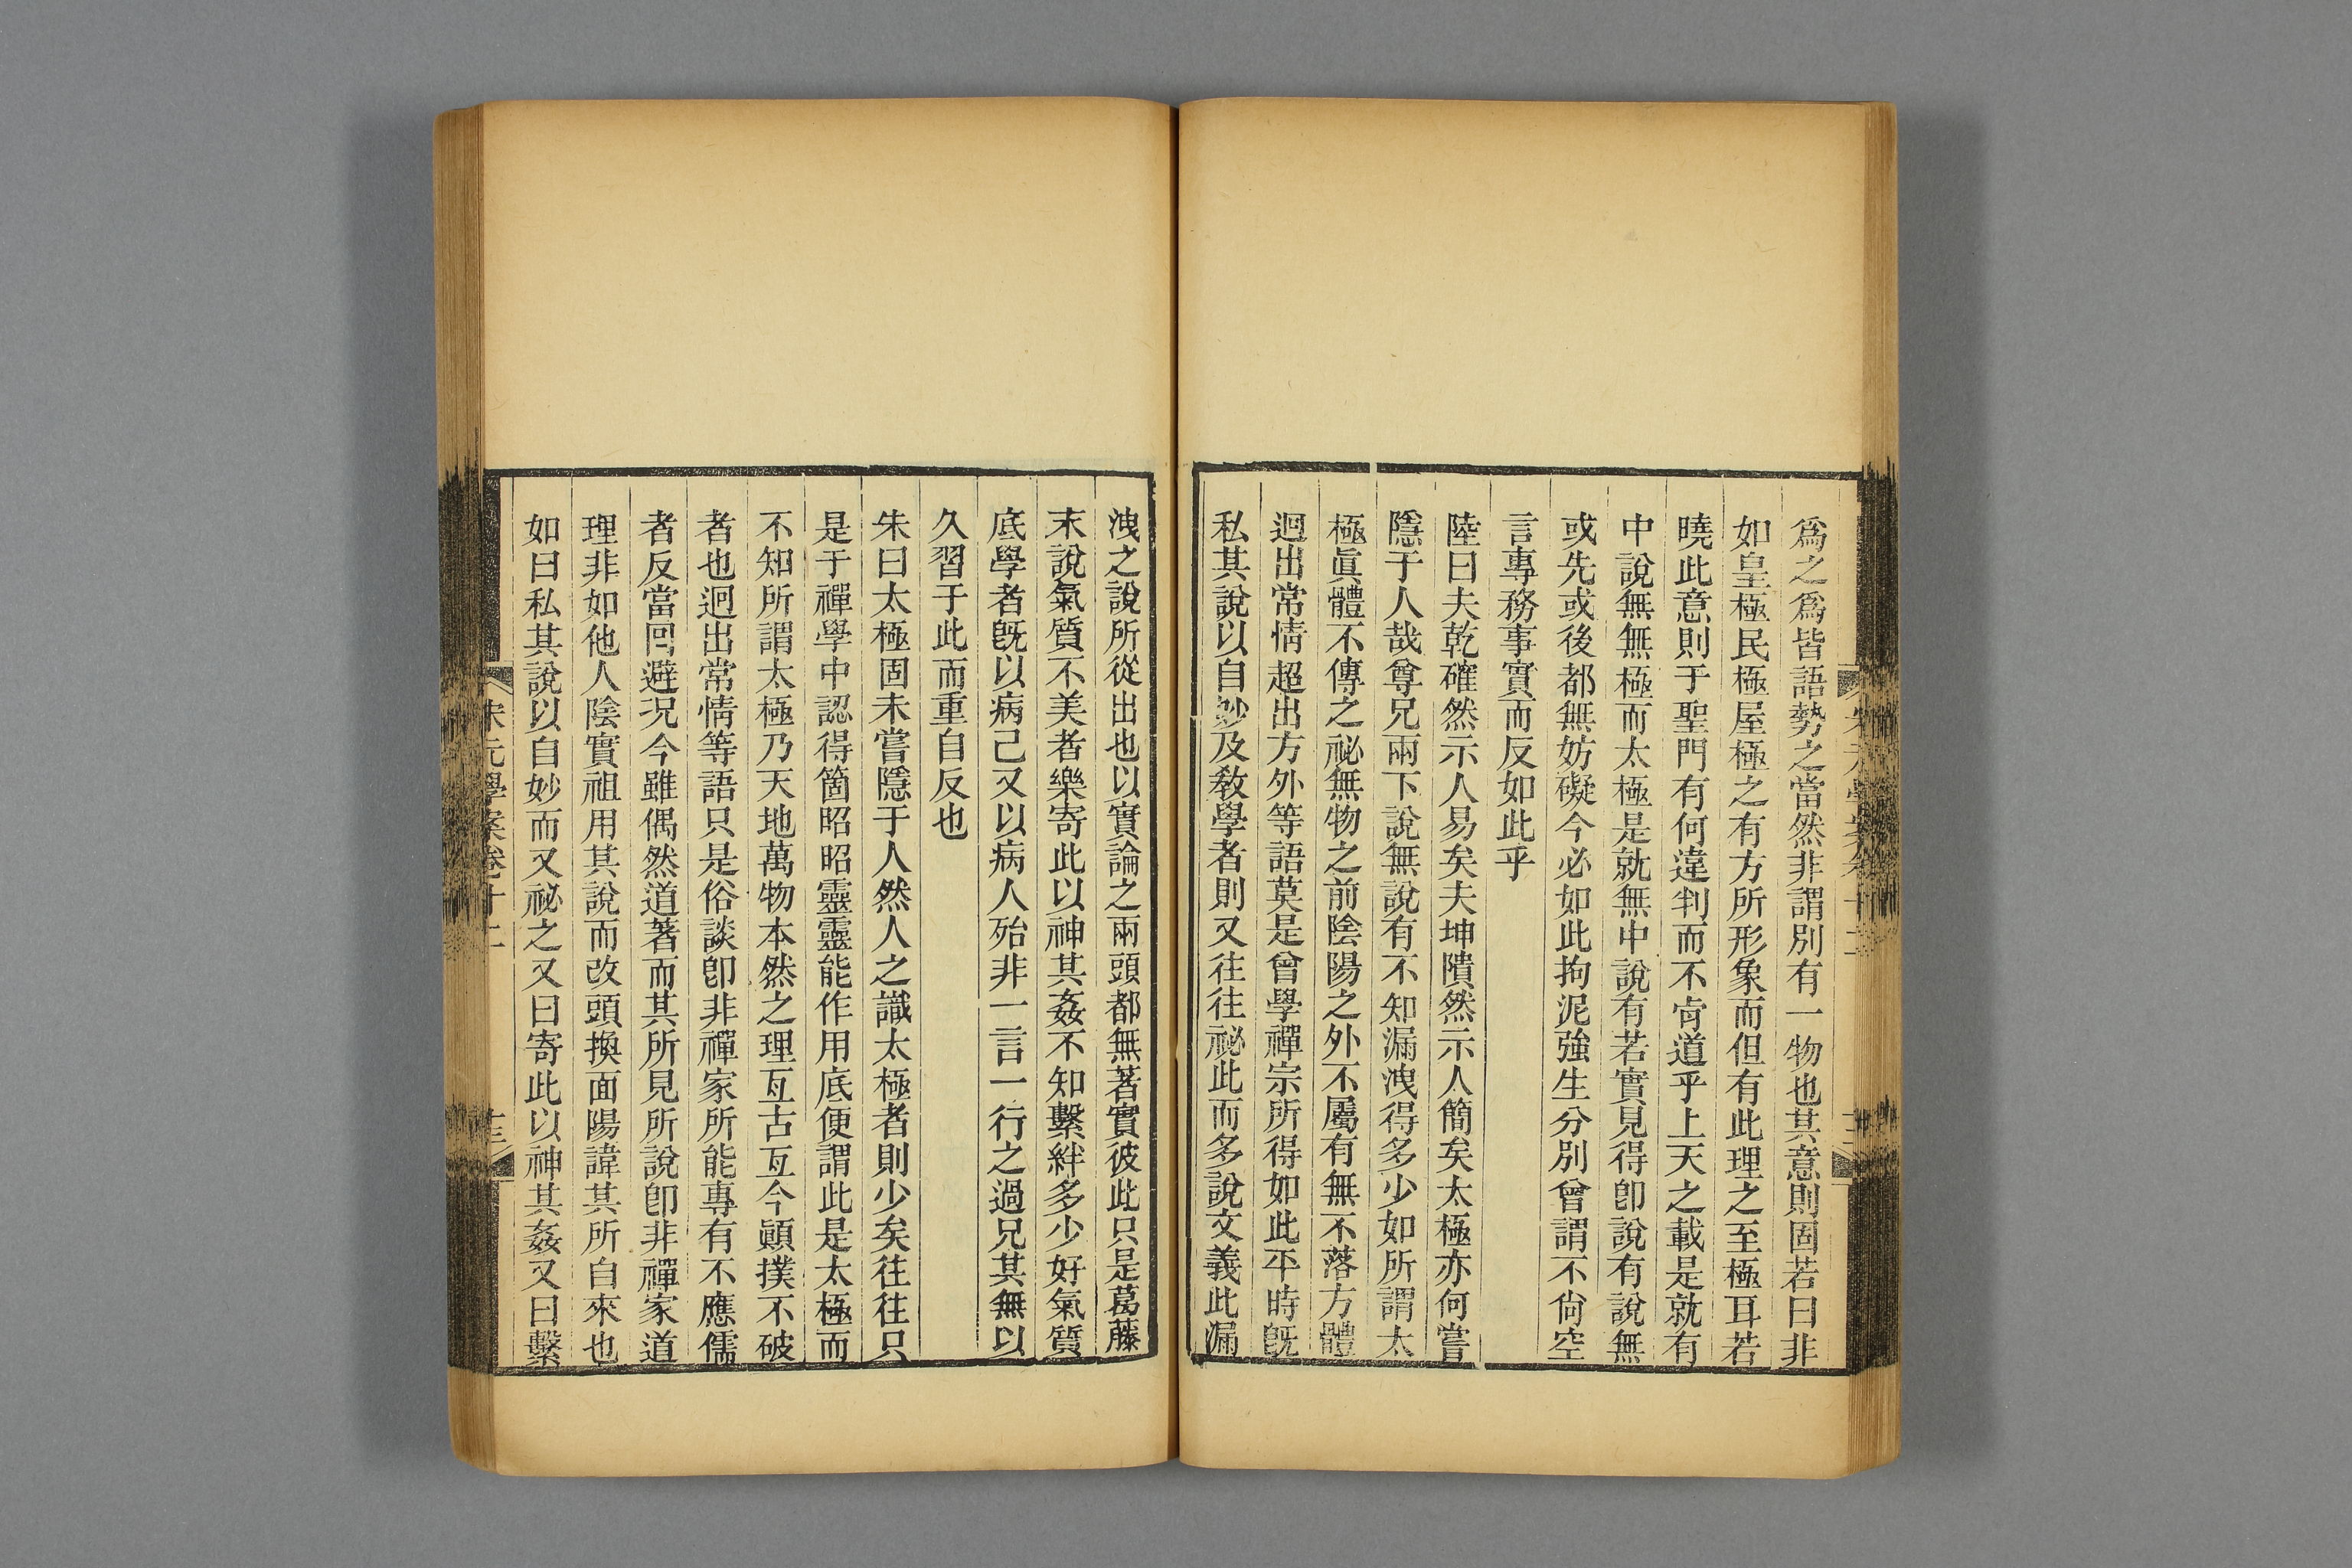 爲之爲皆語勢之當然非謂別有一物也其意則固若曰非
如皇極民極屋極之有方所形象而但有此理之至極耳若
曉此意則于聖門有何違判而不肯道乎上天之載是就有
中說無無極而太極是就無中說有若實見得卽說有說無
或先或後都無妨礙今必如此拘泥強生分別曾謂不尙空
言專務事實而反如此乎
陸曰夫乾確然示人易矣夫坤隤然示人簡矣太極亦何嘗
隱于人哉尊兄兩下說無說有不知漏洩得多少如所謂太
極眞體不傳之祕無物之前陰陽之外不屬有無不落方體
迥出常情超出方外等語莫是曾學禪宗所得如此平時旣
私其說以自妙及敎學者則又往往祕此而多說文義此漏
洩之說所從出也以實論之兩頭都無著實彼此只是葛藤
末說氣質不美者樂寄此以神其姦不知繫絆多少好氣質
底學者旣以病己又以病人殆非一言一行之過兄其無以
久習于此而重自反也
朱曰太極固未嘗隱于人然人之識太極者則少矣往往只
是于禪學中認得箇昭昭靈靈能作用底便謂此是太極而
不知所謂太極乃天地萬物本然之理亙古亙今顚撲不破
者也迥出常情等語只是俗談卽非禪家所能專有不應儒
者反當回避況今雖偶然道著而其所見所說卽非禪家道
理非如他人陰實祖用其說而改頭換面陽諱其所自來也
如曰私其說以自妙而又祕之又曰寄此以神其姦又曰繫
宋元學案卷十二